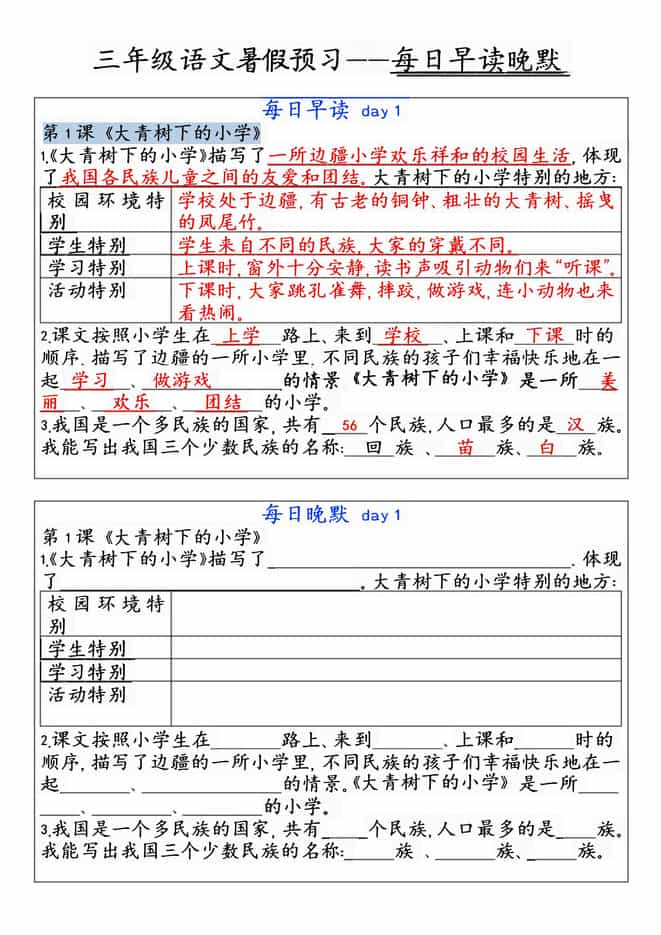 三年级语文暑假预习——每日早读晚默
每日早读 day 1
第1课《大青树下的小学》
1.《大青树下的小学》描写了一所边疆小学欢乐祥和的校园生活,体现
了我国各民族儿童之间的友爱和团结。大青树下的小学特别的地方:
校园环境特别 学校处于边疆,有古老的铜钟、粗壮的大青树、摇曳
的凤尾竹。
学生特别 学生来自不同的民族,大家的穿戴不同。
学习特别 上课时,窗外十分安静,读书声吸引动物们来“听课”。
活动特别 下课时,大家跳孔雀舞,摔跤,做游戏,连小动物也来
看热闹。
2.课文按照小学生在 上学 路上、来到 学校 、上课和 下课 时的
顺序.描写了边疆的一所小学里.不同民族的孩子们幸福快乐地在一
起 学习 、 做游戏 的情景《大青树下的小学》是一所 美
丽 、 欢乐 、 团结 的小学。
3.我国是一个多民族的国家,共有 56 个民族,人口最多的是 汉 族。
我能写出我国三个少数民族的名称: 回 族 、 苗 族、 白 族。
每日晚默 day 1
第1课《大青树下的小学》
1.《大青树下的小学》描写了______________________________.体现
了______________________________。大青树下的小学特别的地方:
校园环境特别
学生特别
学习特别
活动特别
2.课文按照小学生在_______路上、来到_______、上课和______时的
顺序,描写了边疆的一所小学里,不同民族的孩子们幸福快乐地在一
起_______、______________的情景。《大青树下的小学》是一所____
____、________、_________的小学。
3.我国是一个多民族的国家,共有_____个民族,人口最多的是____族。
我能写出我国三个少数民族的名称:_____族 、______族、_____族。